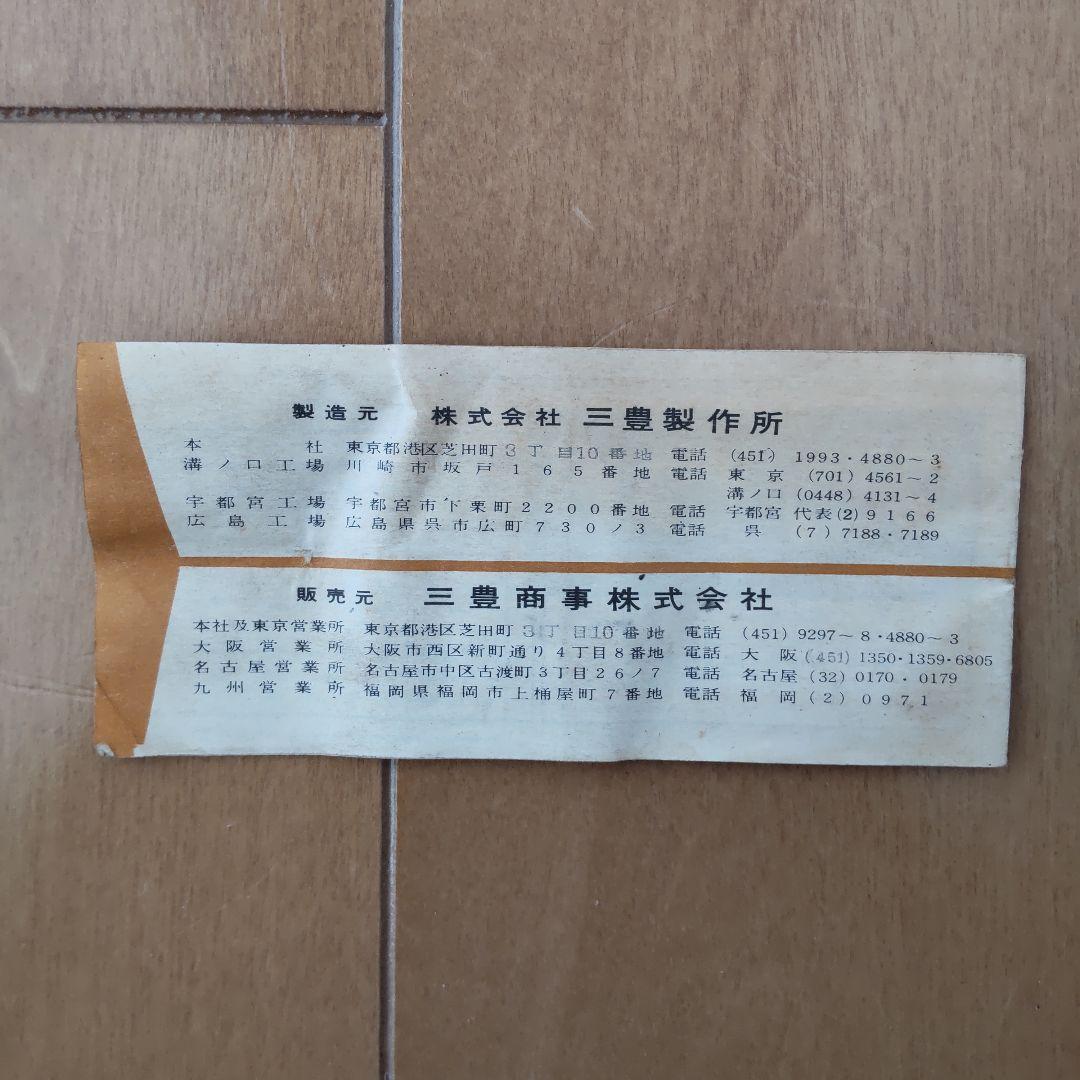 製造元 株式会社 三豊製作所
本社 東京都港区芝田町3丁目10番地 電話 (451) 1993・4880～3
溝ノ口工場 川崎市坂戸165番地 電話 東京 (701) 4561～2
溝ノ口 (0448) 4131～4
宇都宮工場 宇都宮市下栗町2200番地 電話 宇都宮 代表(2)9166
広島工場 広島県呉市広町730ノ3 電話 呉 (7) 7188・7189
販売元 三豊商事株式会社
本社及東京営業所 東京都港区芝田町3丁目10番地 電話 (451) 9297～8・4880～3
大阪営業所 大阪市西区新町通り4丁目8番地 電話 大阪 (451) 1350・1359・6805
名古屋営業所 名古屋市中区古渡町3丁目26ノ7 電話 名古屋 (32) 0170・0179
九州営業所 福岡県福岡市上桶屋町7番地 電話 福岡 (2) 0971